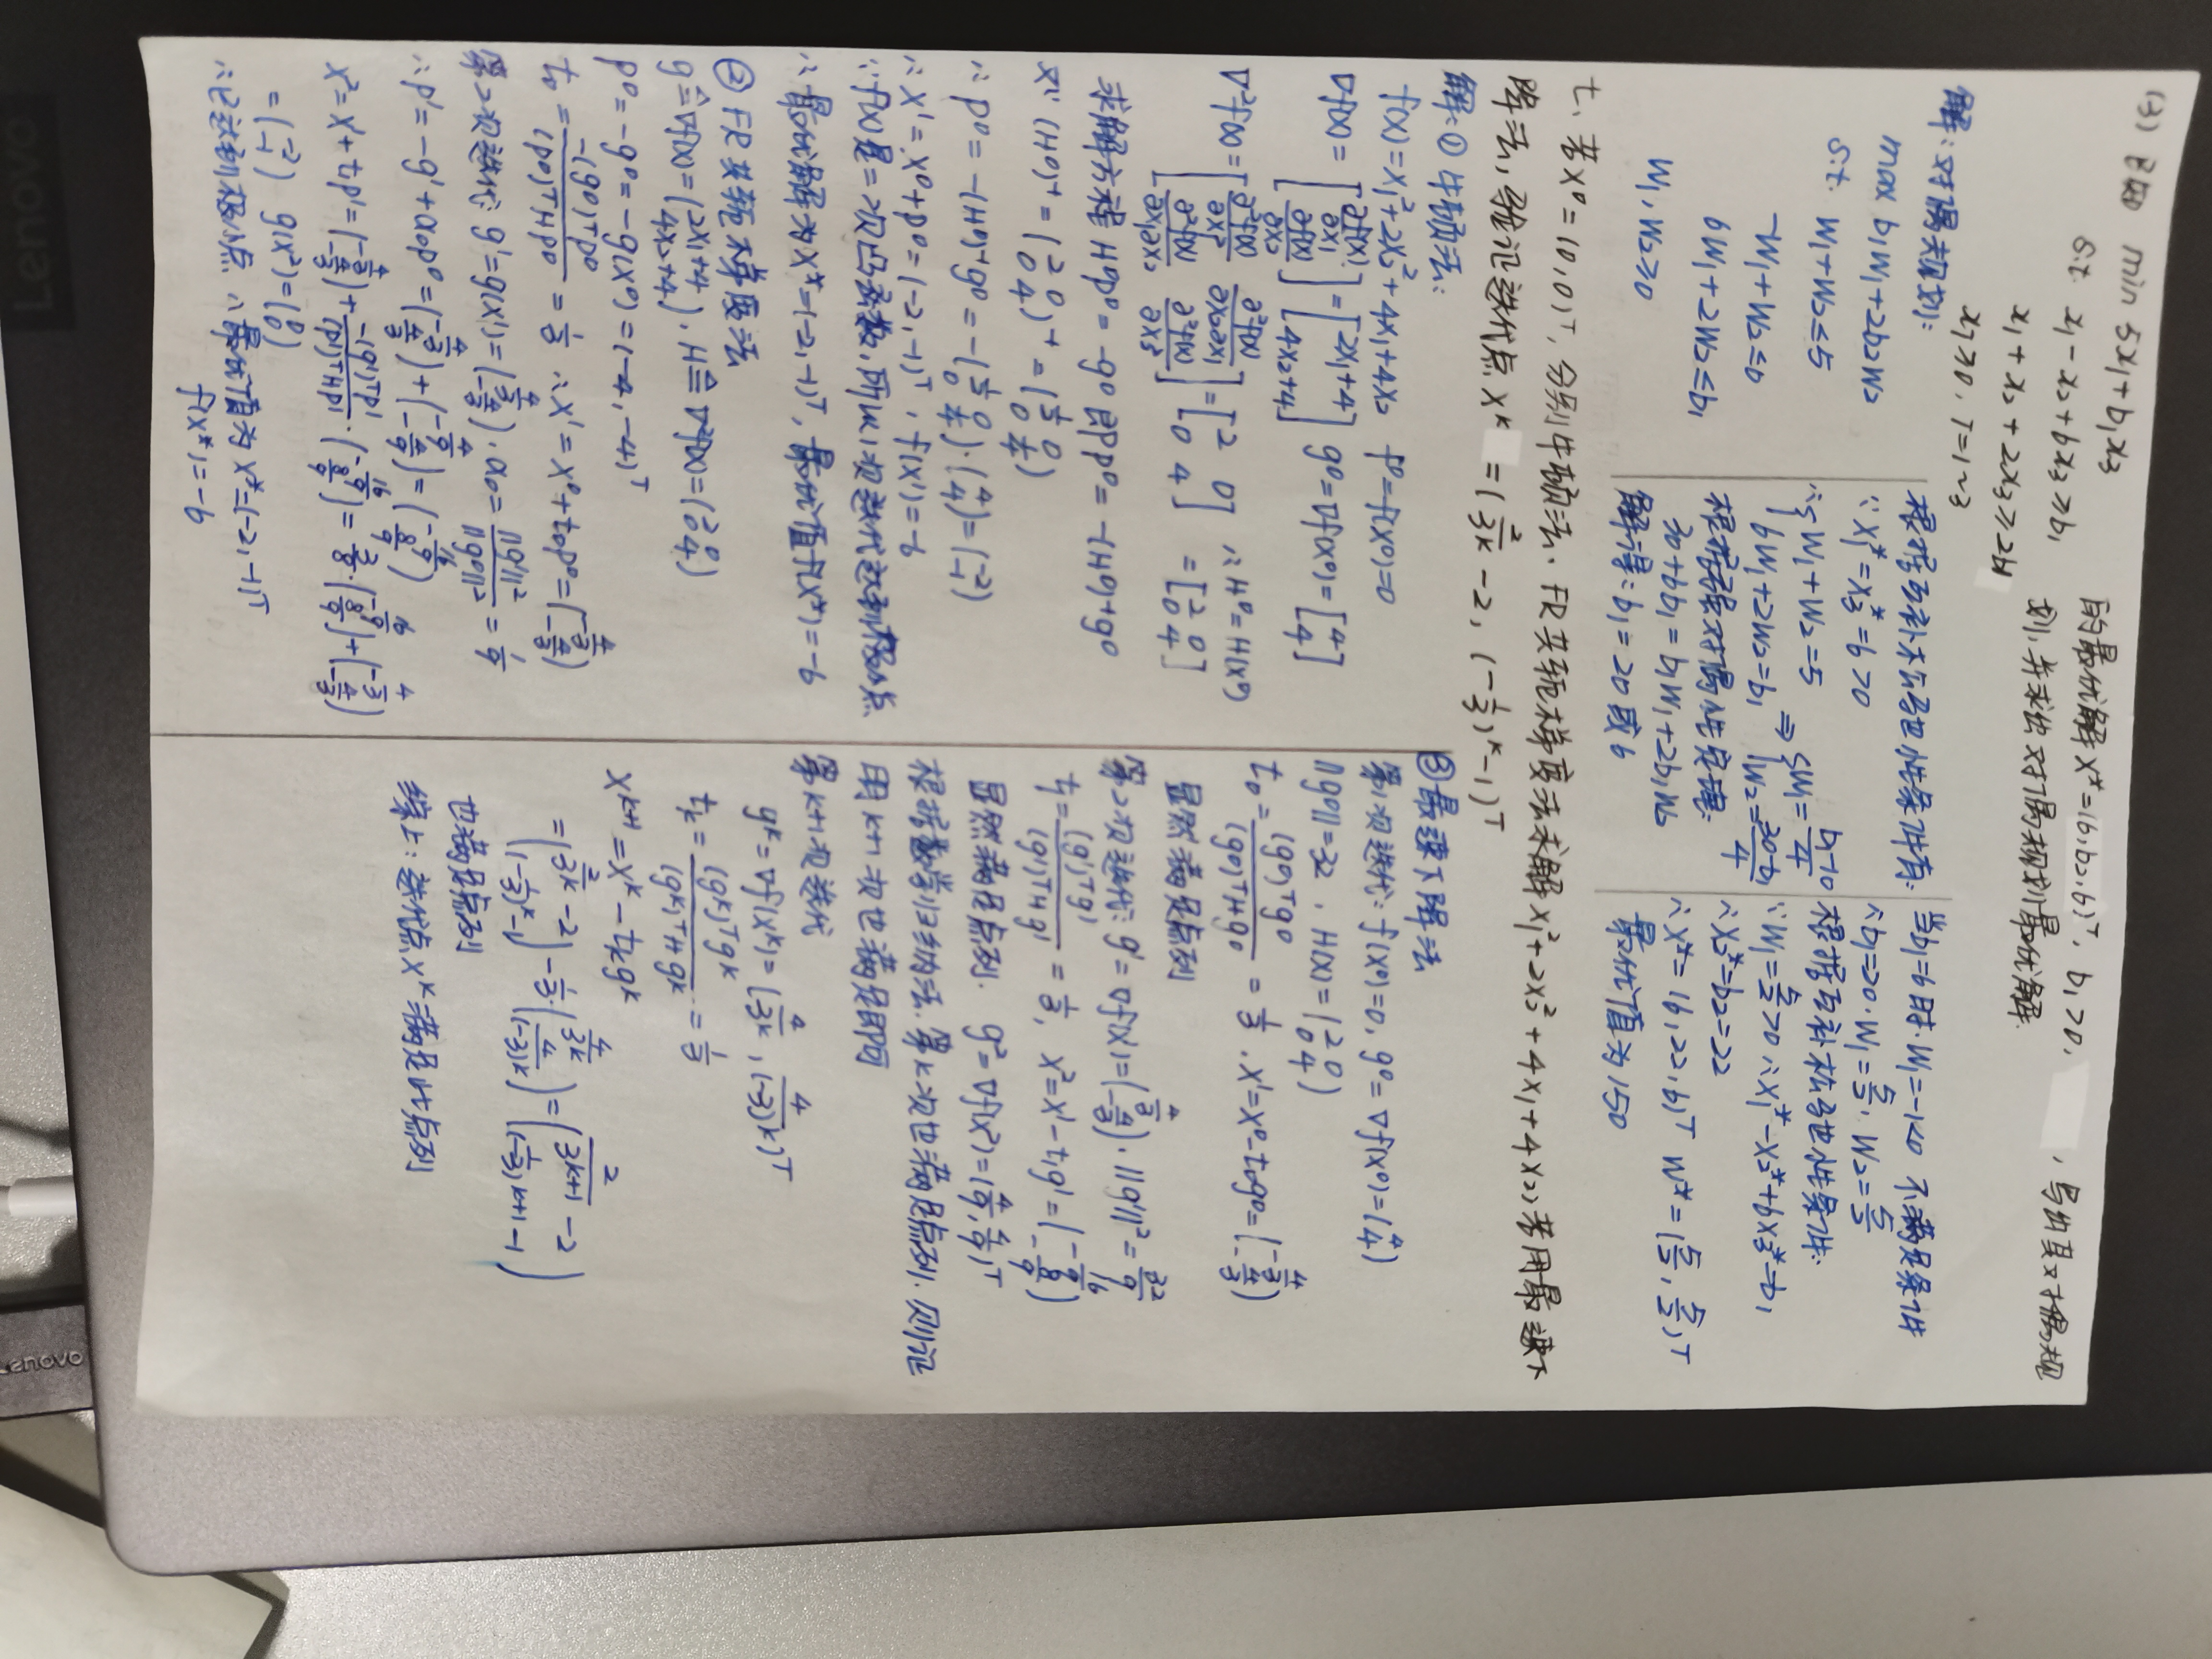 (3) 已知 min 5x₁+b₁x₃
s.t. x₁-x₂+6x₃≥b₁
x₁+x₂+2x₃≥2b₁
xⱼ≥0, j=1~3
的最优解X*=(6,b₂,6)ᵀ, b₁>0, , 写出其对偶规
划,并求出对偶规划最优解.
解:对偶规划:
max b₁W₁+2b₂W₂
s.t. W₁+W₂≤5
-W₁+W₂≤0
6W₁+2W₂≤b₁
W₁,W₂≥0
根据互补松弛性条件有:
∵ X₁*=X₃*=6>0
∴{W₁+W₂=5 6W₁+2W₂=b₁ ⇒ {W₁=(b₁-10)/4 W₂=(30-b₁)/4
根据强对偶性定理:
30+6b₁=b₁W₁+2b₁W₂
解得:b₁=20或6
当b₁=6时.W₁=-1<0 不满足条件
∴b₁=20.W₁=5/2, W₂=5/2
根据互补松弛性条件:
∵W₁=5/2>0 ∴X₁*-X₂*+6X₃*=b₁
∴X₂*=b₂=22
∴X*=(6,22,6)ᵀ W*=(5/2,5/2)ᵀ
最优值为150
七、若X⁰=(0,0)ᵀ,分别牛顿法、FR共轭梯度法求解x₁²+2x₂²+4x₁+4x₂,若用最速下
降法,验证迭代点Xᵏ =(2/3ᵏ-2, (-1/3)ᵏ-1)ᵀ
解:① 牛顿法:
f(X)=X₁²+2X₂²+4X₁+4X₂ f⁰=f(X⁰)=0
∇f(X)=[∂f(X)/∂X₁ ∂f(X)/∂X₂]=[2X₁+4 4X₂+4] g⁰=∇f(X⁰)=[4 4]
∇²f(X)=[∂²f(X)/∂X₁² ∂²f(X)/∂X₂∂X₁ ∂²f(X)/∂X₁∂X₂ ∂²f(X)/∂X₂²]=[2 0 0 4] ∴H⁰=H(X⁰)
=[2 0 0 4]
求解方程H⁰P⁰=-g⁰ 即P⁰=-(H⁰)⁻¹g⁰
又∵(H⁰)⁻¹=(2 0 0 4)⁻¹=(1/2 0 0 1/4)
∴P⁰=-(H⁰)⁻¹g⁰=-(1/2 0 0 1/4)·(4 4)=(-2 -1)
∴X¹=X⁰+P⁰=(-2,-1)ᵀ, f(X¹)=-6
∵f(X)是二次凸函数,所以1次迭代达到极小点
∴最优解为X*=(-2,-1)ᵀ,最优值f(X*)=-6
② FR共轭梯度法
g≜∇f(X)=(2X₁+4 4X₂+4), H≜∇²f(X)=(2 0 0 4)
P⁰=-g⁰=-g(X⁰)=(-4,-4)ᵀ
t₀=-(g⁰)ᵀP⁰/(P⁰)ᵀHP⁰=1/3 ∴X¹=X⁰+t₀P⁰=(-4/3 -4/3)
第2次迭代:g¹=g(X¹)=(4/3 -4/3), α₀=||g¹||²/||g⁰||²=1/9
∴P¹=-g¹+α₀P⁰=(-4/3 4/3)+(-4/9 -4/9)=(-16/9 8/9)
X²=X¹+t₁P¹=(-4/3 -4/3)+-(g¹)ᵀP¹/(P¹)ᵀHP¹·(-16/9 8/9)=3/8·(-16/9 8/9)+(-4/3 -4/3)
=(-2 -1) g(X²)=(0 0)
∴已达到极小点 ∴最优值为X*=(-2,-1)ᵀ
f(X*)=-6
③最速下降法
第1次迭代:f(X⁰)=0, g⁰=∇f(X⁰)=(4 4)
||g⁰||=32 , H(X)=(2 0 0 4)
t₀=(g⁰)ᵀg⁰/(g⁰)ᵀHg⁰=1/3 .X¹=X⁰-t₀g⁰=(-4/3 -4/3)
显然满足点列
第2次迭代:g¹=∇f(X¹)=(4/3 -4/3).||g¹||²=32/9
t₁=(g¹)ᵀg¹/(g¹)ᵀHg¹=1/3, X²=X¹-t₁g¹=(-16/9 -8/9)
显然满足点列. g²=∇f(X²)=(4/9,4/9)ᵀ
根据数学归纳法.第k次也满足点列.则证
明k+1次也满足即可
第k+1次迭代
gᵏ=∇f(Xᵏ)=(4/3ᵏ, 4/(-3)ᵏ)ᵀ
tₖ=(gᵏ)ᵀgᵏ/(gᵏ)ᵀHgᵏ=1/3
Xᵏ⁺¹=Xᵏ-tₖgᵏ
=(2/3ᵏ-2 (-1/3)ᵏ-1)-1/3·(4/3ᵏ 4/(-3)ᵏ)=(2/3ᵏ⁺¹-2 (1/-3)ᵏ⁺¹-1)
也满足点列
综上:迭代点Xᵏ满足此点列
Lenovo
Lenovo